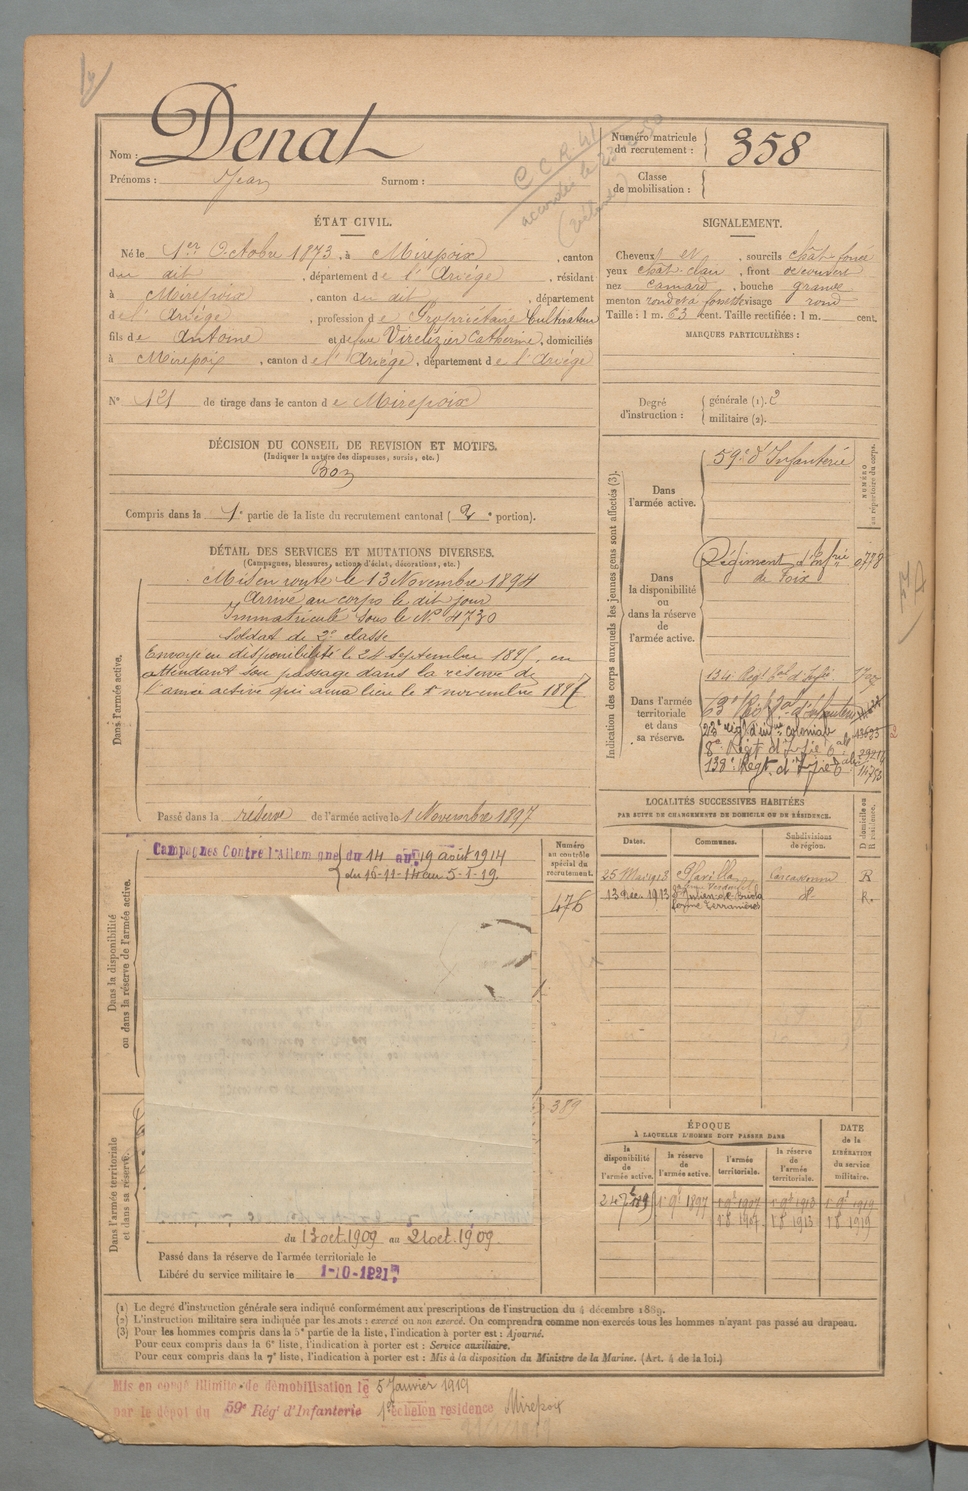 Nom : Denat
Prénoms : Jean Surnom :
C C R 41
Numéro matricule du recrutement : 358
Classe de mobilisation :
ÉTAT CIVIL.
Né le 1er Octobre 1873, à Mirepoix, canton
du dit, département de l'Ariège, résidant
à Mirepoix, canton du dit, département
de l'Ariège, profession de Propriétaire Cultivateur
fils de Antoine et de feue Virelizier Catherine, domiciliés
à Mirepoix, canton de l'Ariège, département de l'Ariège
N° 121 de tirage dans le canton de Mirepoix
SIGNALEMENT.
Cheveux et, sourcils chât. foncé
yeux chât. clair, front découvert
nez camard, bouche grande
menton rond et à fossette visage rond
Taille : 1 m. 63 cent. Taille rectifiée : 1 m. cent.
MARQUES PARTICULIÈRES :
Degré d'instruction : générale (1). 2
militaire (2).
DÉCISION DU CONSEIL DE REVISION ET MOTIFS.
(Indiquer la nature des dispenses, sursis, etc.)
Bon
Compris dans la 1e partie de la liste du recrutement cantonal ( 2e portion).
DÉTAIL DES SERVICES ET MUTATIONS DIVERSES.
(Campagnes, blessures, actions d'éclat, décorations, etc.)
Dans l'armée active.
Mis en route le 13 Novembre 1894
Arrivé au corps le dit jour
Immatriculé sous le N° 4730
Soldat de 2e classe
Envoyé en disponibilité le 24 septembre 1895, en
attendant son passage dans la réserve de
l'armée active qui aura lieu le 1er novembre 1897
Passé dans la réserve de l'armée active le 1 Novembre 1897
Indication des corps auxquels les jeunes gens sont affectés (3).
NUMÉRO au répertoire du corps.
Dans l'armée active.
59e d'Infanterie
Dans la disponibilité ou dans la réserve de l'armée active.
Régiment d'Infrie de Foix 0738
Dans l'armée territoriale et dans sa réserve.
134 Régt tal d'Infie
63e Régt tal d'Infanterie
23e régt d'infrie coloniale
8e Régt d'Infie Cale
138e Régt d'Infie
Dans la disponibilité ou dans la réserve de l'armée active.
Campagnes Contre l'Allemagne du 14 au 19 août 1914
du 16-11-14 au 5-1-19.
Numéro au contrôle spécial du recrutement.
476
389
LOCALITÉS SUCCESSIVES HABITÉES
PAR SUITE DE CHANGEMENTS DE DOMICILE OU DE RÉSIDENCE.
Dates. Communes. Subdivisions de région. D domicile ou R résidence.
25 Mai 1908 Plavilla Carcassonne R
13 Déc. 1913 St Julien-de-Briola R.
Dans l'armée territoriale et dans sa réserve.
du 13 oct. 1909 au 21 oct. 1909.
Passé dans la réserve de l'armée territoriale le
Libéré du service militaire le 1-10-1921
ÉPOQUE
À LAQUELLE L'HOMME DOIT PASSER DANS
la disponibilité de l'armée active. la réserve de l'armée active. l'armée territoriale. la réserve de l'armée territoriale.
DATE de la LIBÉRATION du service militaire.
1er 9bre 1897 1er 9bre 1907 1er 9bre 1913 1er 9bre 1919
1er 8 1907 1er 8 1913 1er 8 1919
(1) Le degré d'instruction générale sera indiqué conformément aux prescriptions de l'instruction du 4 décembre 1889.
(2) L'instruction militaire sera indiquée par les mots : exercé ou non exercé. On comprendra comme non exercés tous les hommes n'ayant pas passé au drapeau.
(3) Pour les hommes compris dans la 5e partie de la liste, l'indication à porter est : Ajourné.
Pour ceux compris dans la 6e liste, l'indication à porter est : Service auxiliaire.
Pour ceux compris dans la 7e liste, l'indication à porter est : Mis à la disposition du Ministre de la Marine. (Art. 4 de la loi.)
Mis en congé illimité de démobilisation le 5 Janvier 1919
par le dépot du 59e Rég' d'Infanterie 1er échelon residence Mirepoix